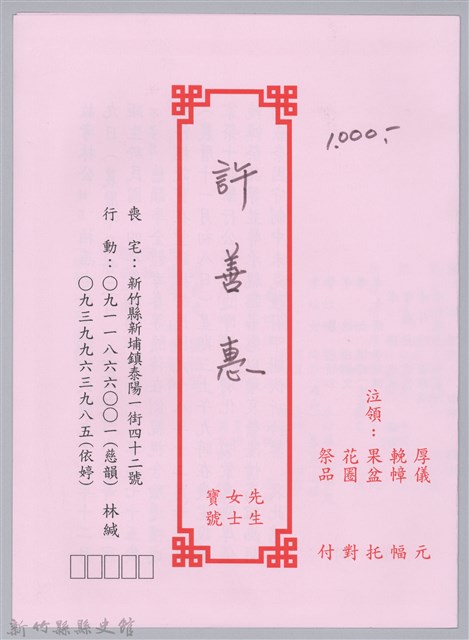 1,000.-
泣領：
厚儀 元
輓幛 幅
果盆 托
花圈 對
祭品 付
許善惠
先生
女士
寶號
喪宅：新竹縣新埔鎮泰陽一街四十二號
行動：〇九一一八六六〇〇一(慈韻) 林緘
〇九三九九六三九八五(依婷)
新竹縣縣史館